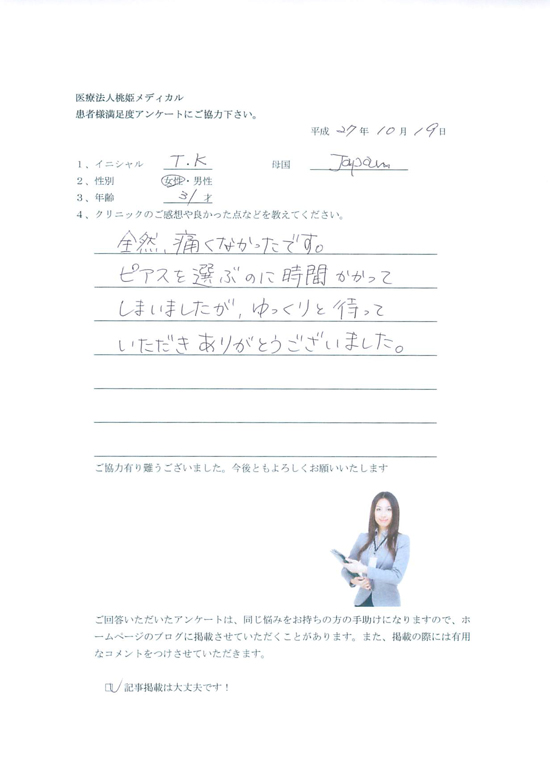 医療法人桃姫メディカル
患者様満足度アンケートにご協力下さい。
平成 27 年 10 月 19 日
1、イニシャル T.K 母国 Japan
2、性別 女性・男性
3、年齢 31 才
4、クリニックのご感想や良かった点などを教えてください。
全然、痛くなかったです。
ピアスを選ぶのに時間かかって
しまいましたが、ゆっくりと待って
いただきありがとうございました。
ご協力有り難うございました。今後ともよろしくお願いいたします
ご回答いただいたアンケートは、同じ悩みをお持ちの方の手助けになりますので、ホ
ームページのブログに掲載させていただくことがあります。また、掲載の際には有用
なコメントをつけさせていただきます。
☑記事掲載は大丈夫です！